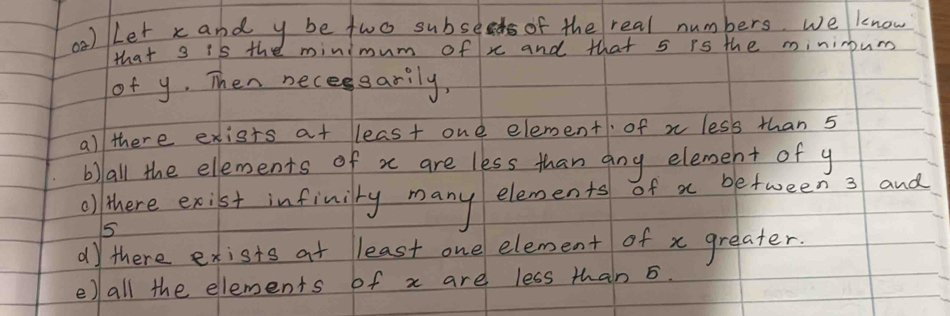 02) Let x and y be two subsects of the real numbers. We know
that 3 is the minimum of x and that 5 is the minimum
of y. Then necessarily,
a) there exists at least one element of x less than 5
b) all the elements of x are less than any element of y
c) there exist infinity many elements of x between 3 and
5
d) there exists at least one element of x greater.
e) all the elements of x are less than 5.